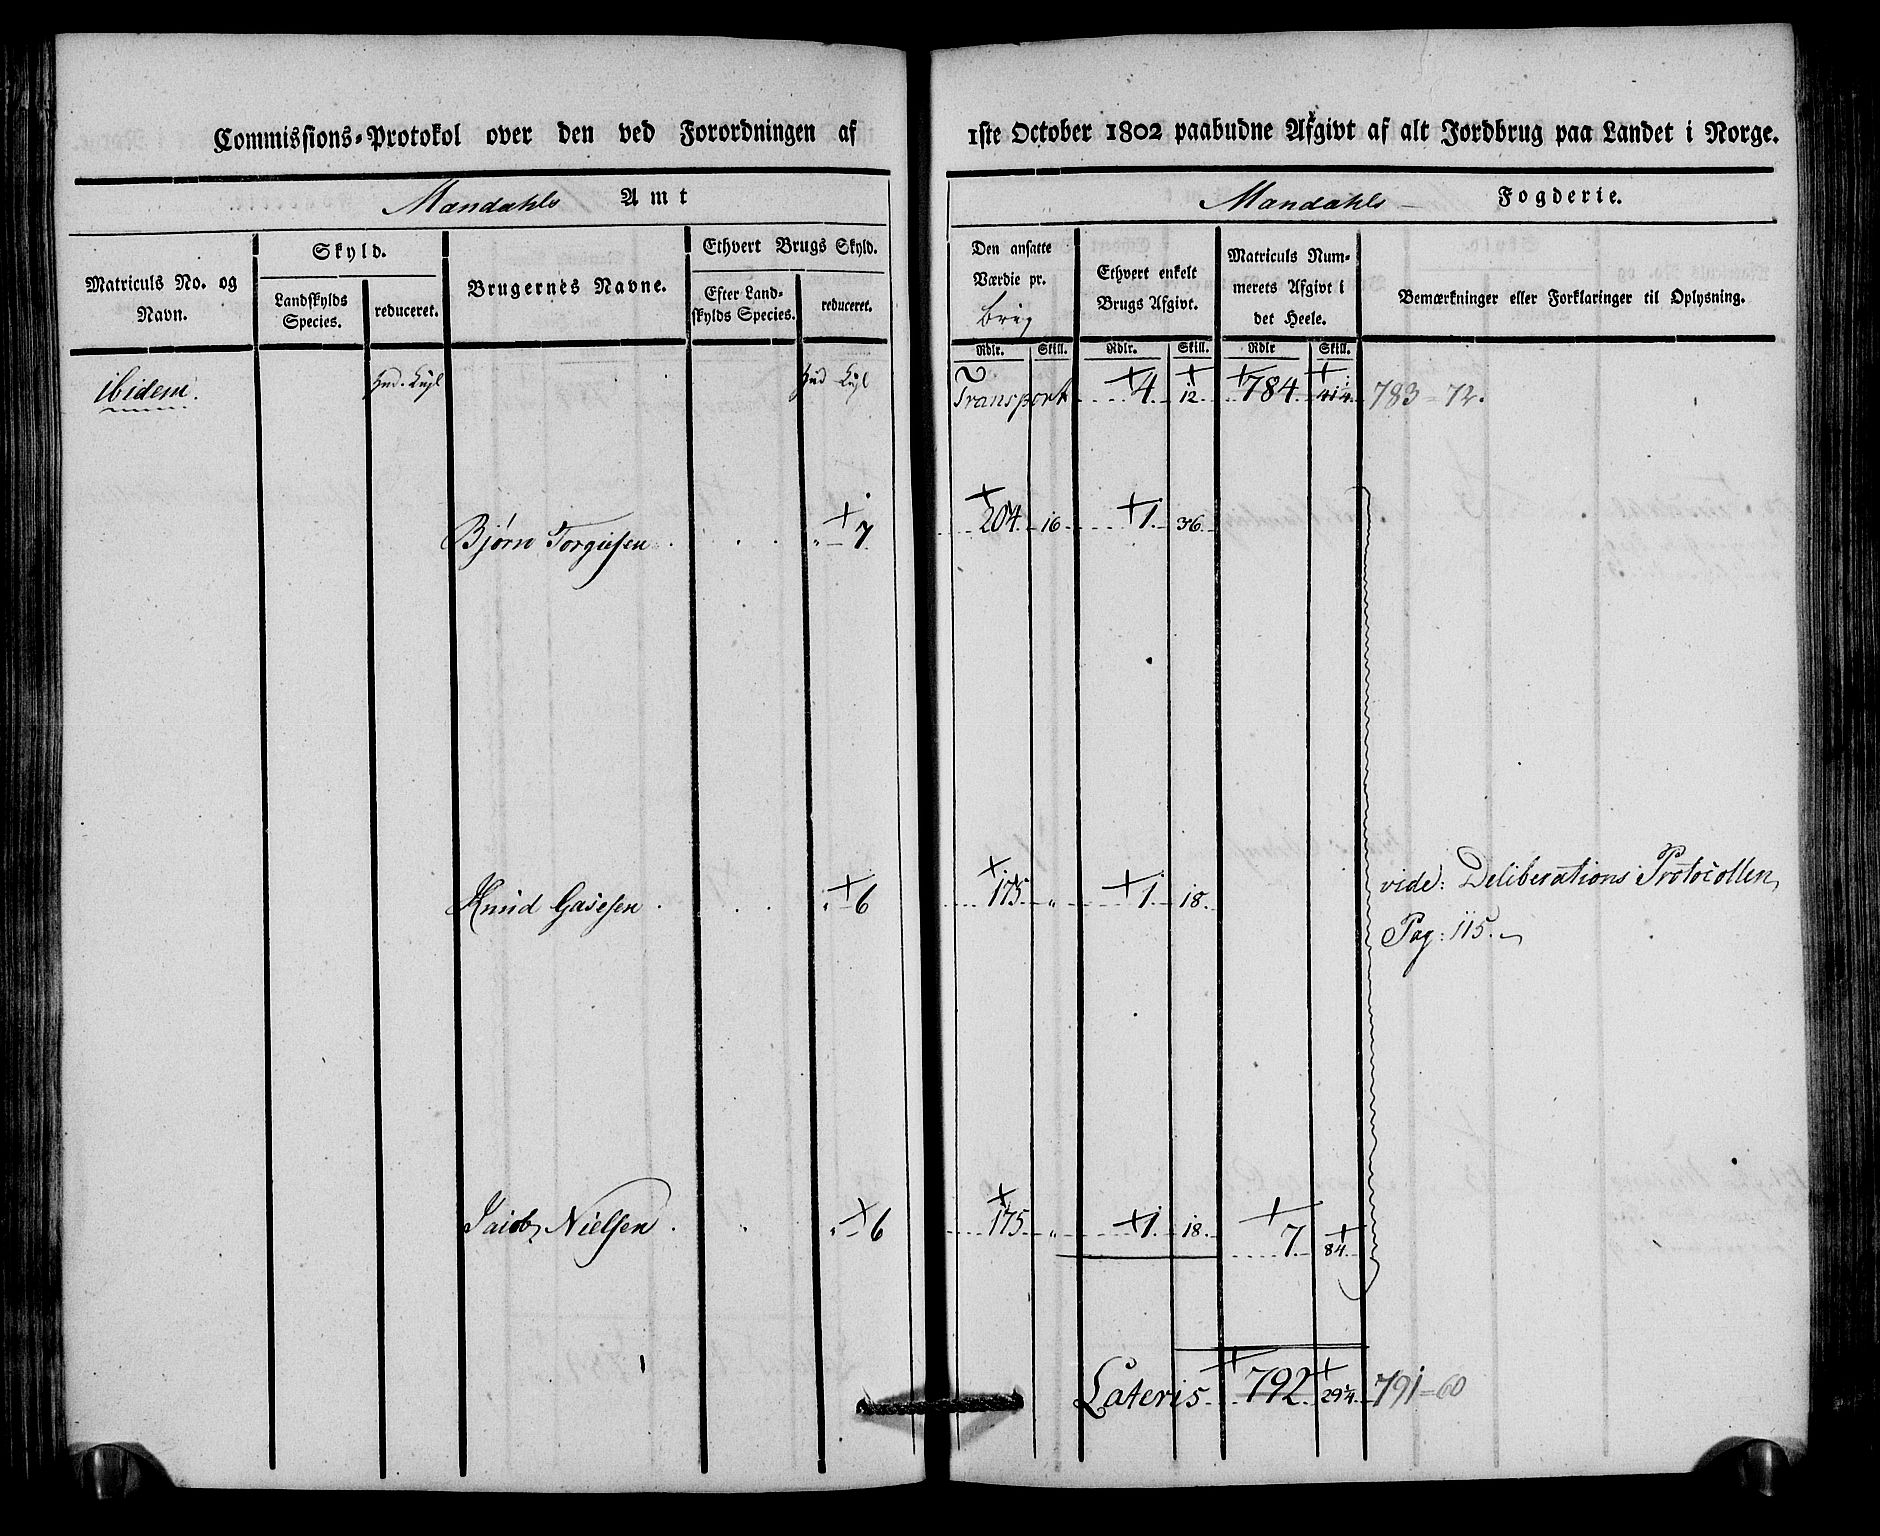 Commissions-Protokol over den ved Forordningen af 1ste October 1802 paabudne Afgivt af alt Jordbrug paa Landet i Norge.
Mandahls Amt
Mandahls Fogderie.
Matriculs No. og Navn.
Skyld.
Landskylds Species.
reduceret.
Brugernes Navne.
Ethvert Brugs Skyld.
Efter Landskylds Species.
reduceret.
Den ansatte Værdie pr. brug
Ethvert enkelt Brugs Afgivt.
Matriculs Nummerets Afgivt i det Heele.
Bemærkninger eller Forklaringer til Oplysning.
Rdlr. Skill. Rdlr. Skill. Rdlr Skill.
ibidem. Hud. Hud Transport 4 12 784 783 = 72.
Bjørn Torgiesen 7 204 16 1 36
Knud 6 175 „ 1 18 vide: Deliberations Protocollen
Pag: 115.
Jacob Nielsen 6 175 „ 1 18 7 84
Lateris 792 29¼ 791 = 60